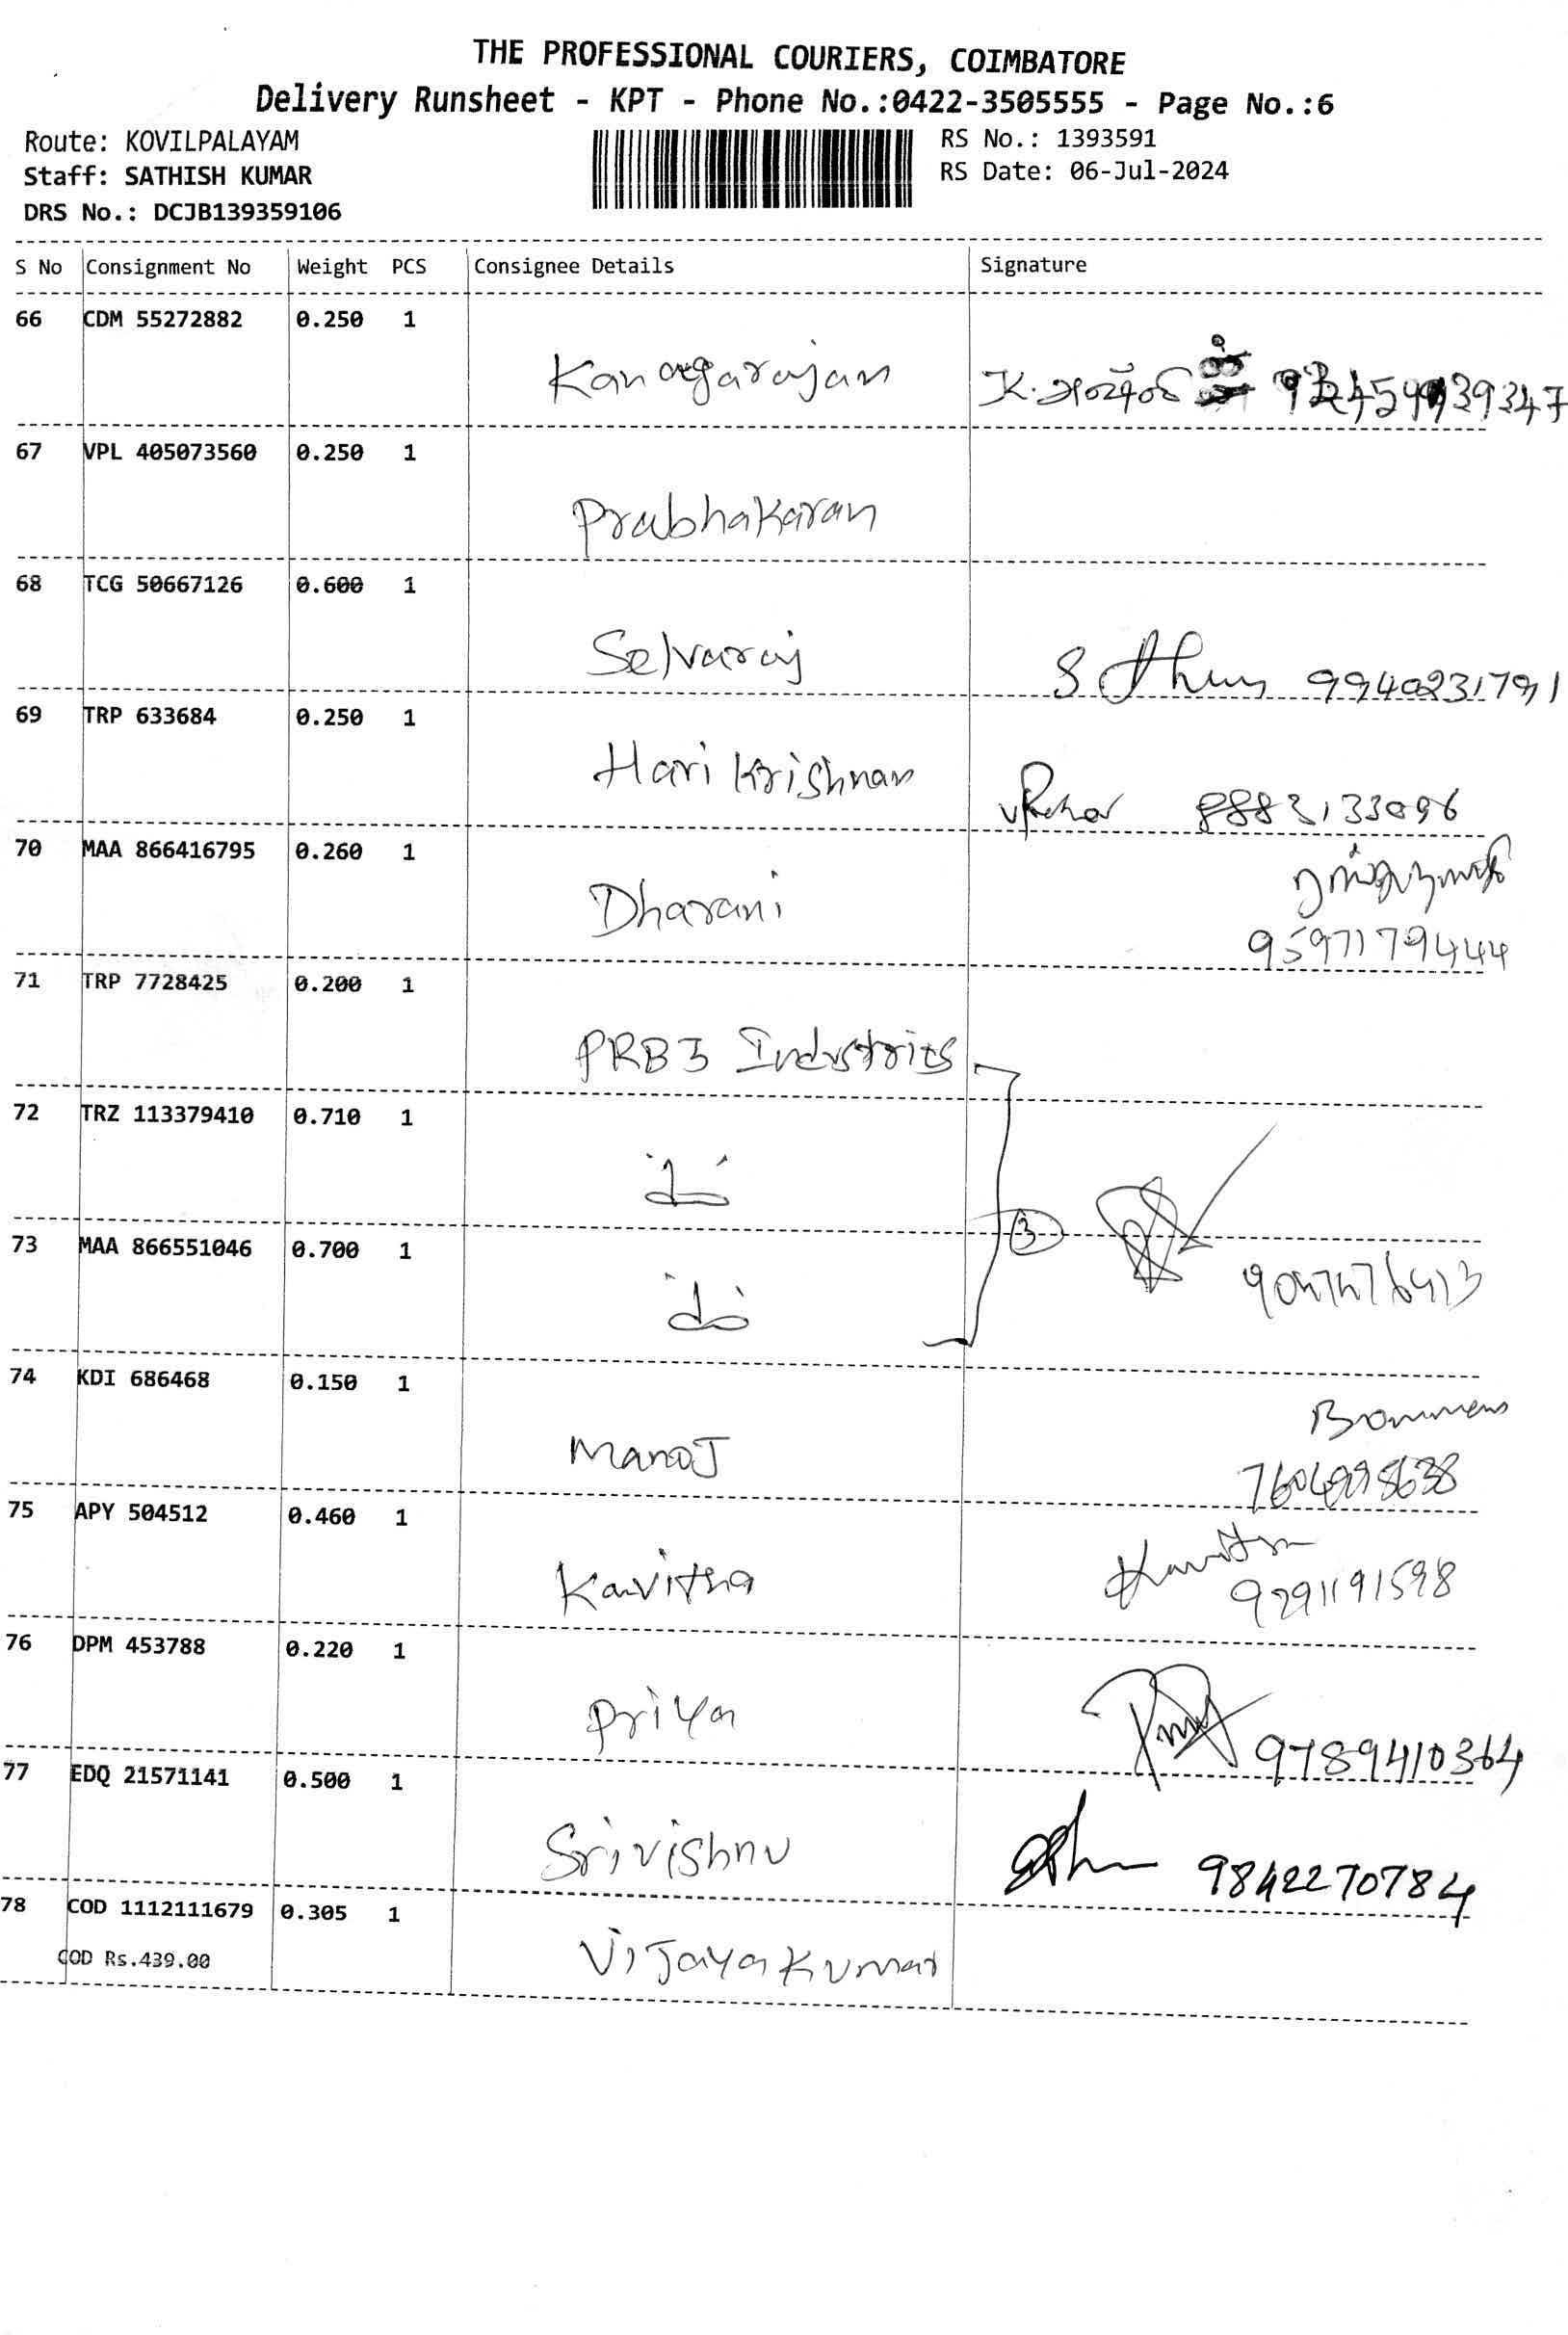 THE PROFESSIONAL COURIERS, COIMBATORE
Delivery Runsheet - KPT - Phone No.:0422-3505555 - Page No.:6
Route: KOVILPALAYAM
Staff: SATHISH KUMAR
DRS No.: DCJB139359106
RS No.: 1393591
RS Date: 06-Jul-2024
S No Consignment No Weight PCS Consignee Details Signature
66 CDM 55272882 0.250 1
Kanagarajan K.
67 VPL 405073560 0.250 1
Prabhakaran
68 TCG 50667126 0.600 1
Selvaraj S 9940231791
69 TRP 633684 0.250 1
Hari Krishnan 8883133096
70 MAA 866416795 0.260 1
Dharani
9597179444
71 TRP 7728425 0.200 1
PRB3 Industries
72 TRZ 113379410 0.710 1
73 MAA 866551046 0.700 1
3
74 KDI 686468 0.150 1
ManoJ
75 APY 504512 0.460 1
Kavitha
9291191598
76 DPM 453788 0.220 1
Priya 9789410364
77 EDQ 21571141 0.500 1
Srivishnu 9842270784
78 COD 1112111679 0.305 1
COD Rs.439.00
VijayaKumar